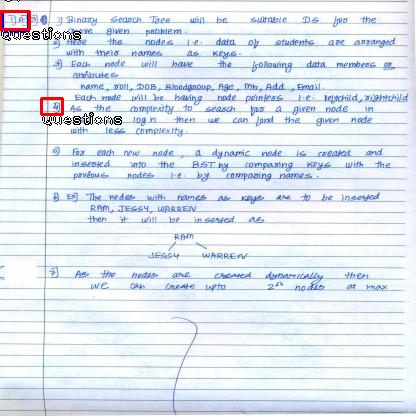 1) A) 1) Binary Search Tree will be suitable DS for the
above given problem.
questions
2) Here the nodes i.e. data of students are arranged
with their names as keys.
3) Each node will have the following data members or
attributes
name, roll, DOB, Bloodgroup, Age, Mb, Add, Email.
Each node will be having node pointers i.e. leftchild, rightchild
4) As the complexity to search for a given node in
questions log n then we can find the given node
with less complexity.
5) For each new node, a dynamic node is created and
inserted into the BST by comparing keys with the
previous nodes i.e. by comparing names.
6) Ex) The nodes with names as keys are to be inserted
RAM, JESSY, WARREN
then it will be inserted as
RAM
JESSY WARREN
7) As the nodes are created dynamically then
we can create upto nodes at max